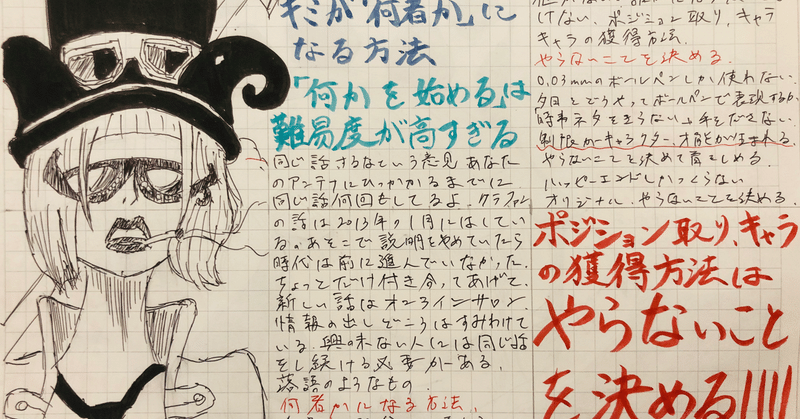 キミが「何者か」に
なる方法
「何かを始める」は
難易度が高すぎる
同じ話するなという意見あなた
のアンテナにひっかかるまでに
同じ話何回もしてるよ。クラファン
の話は2013年の1月にはしてい
る。あそこで説明をやめていたら
時代は前に進んでいなかった。
ちょっとだけ付き合ってあげて。
新しい話はオンラインサロン。
情報の出しどころはすみわけて
いる。興味ない人には同じ話
をし続ける必要がある。
落語のようなもの。
何者かになる方法、
けない、ポジション取り、キャラ
キャラの獲得方法
やらないことを決める。
0.03mmのボールペンしか使わない。
夕日をどうやってボールペンで表現するか、
時事ネタを走らない、手をださない。
制限がキャラクター、才能が生まれる。
やらないことを決めて育てしめる。
ハッピーエンドしかつくらない
オリジナル、やらないことを決める。
ポジション取り、キャラ
の獲得方法は
やらないこと
を決める!!!!